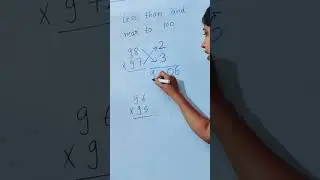 Less than and
near to 100
98 2
x 97 3
9 06
96
x 95